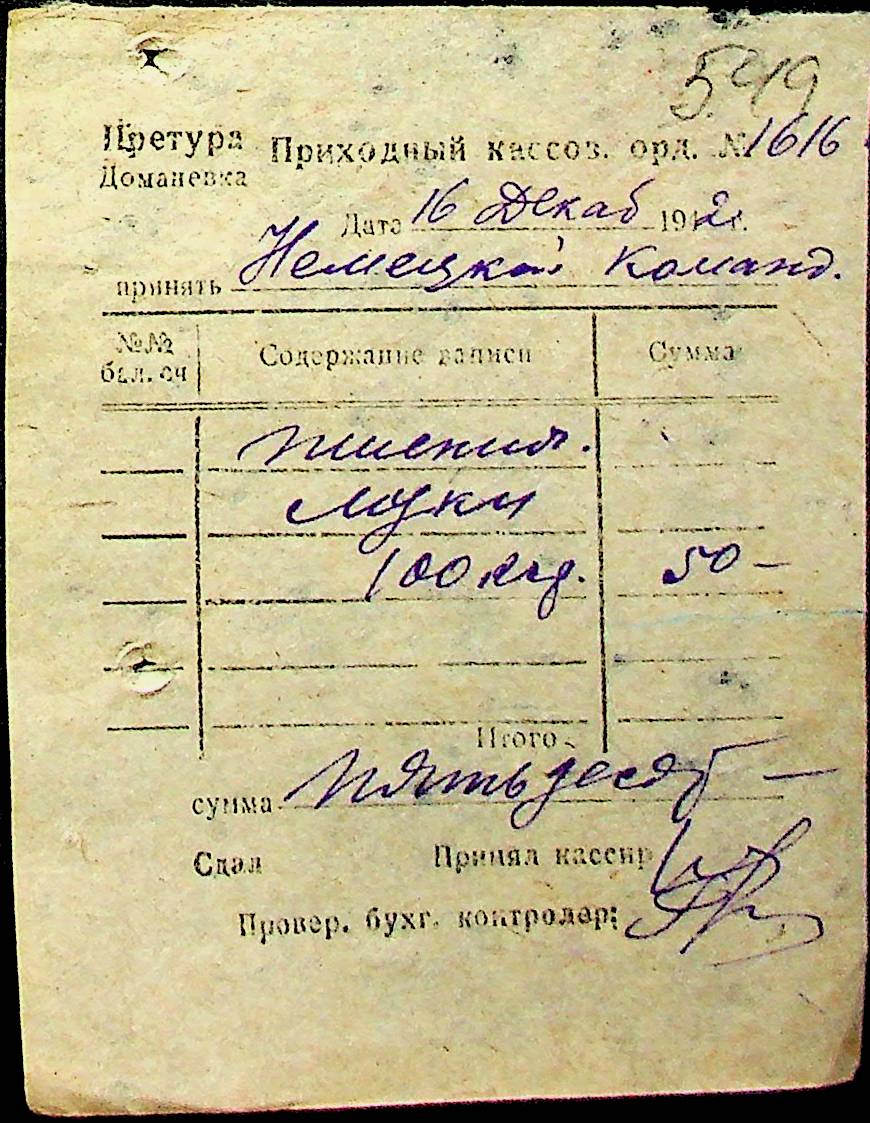 549
Претура Приходный кассов. орд. № 1616
Доманевка
Дата 16 Декаб 1942г.
принять Немецкой Команд.
№№ бал. сч Содержание записи Сумма
пшенич.
муки
100 кгр. 50 –
Итого
сумма Пятьдесят –
Сдал Принял кассир
Провер. бухг. контролер: